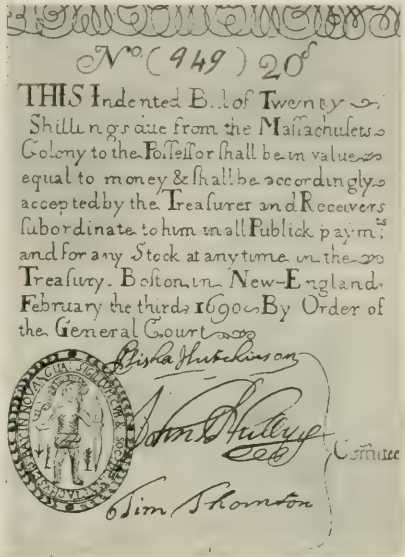 No. (949) 20s
THIS Indented Bill of Twenty
Shillings due from the Maſſachuſets
Colony to the Poſſeſſor ſhall be in value
equal to money & ſhall be accordingly
accepted by the Treaſurer and Receivers
ſubordinate to him in all Publick paymts
and for any Stock at any time in the
Treaſury. Boſton in New-England
February the third 1690. By Order of
the General Court
Eliſha Hutchinson
John Walley
Comittee
Tim Thornton